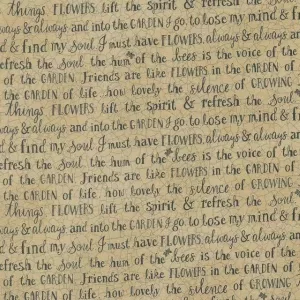 Things FLOWERS lift the Spirit & refresh the Soul
ways & always and into the GARDEN I go, to lose my mind & f
d & find my Soul I must have FLOWERS, always & always an
refresh the Soul the hum of the bees is the voice of the
of the GARDEN. Friends are like FLOWERS in the GARDEN of
the GARDEN of life. how lovely the silence of GROWING
Things FLOWERS lift the Spirit & refresh the Soul
ways & always and into the GARDEN I go, to lose my mind & f
d & find my Soul I must have FLOWERS, always & always an
refresh the Soul the hum of the bees is the voice of the
of the GARDEN. Friends are like FLOWERS in the GARDEN of
the GARDEN of life. how lovely the silence of GROWING
Things FLOWERS lift the Spirit & refresh the Soul
ways & always and into the GARDEN I go, to lose my mind & f
d & find my Soul I must have FLOWERS, always & always an
efresh the Soul the hum of the bees is the voice of the
of the GARDEN. Friends are like FLOWERS in the GARDEN of
the GARDEN of life. how lovely the silence of GROWING